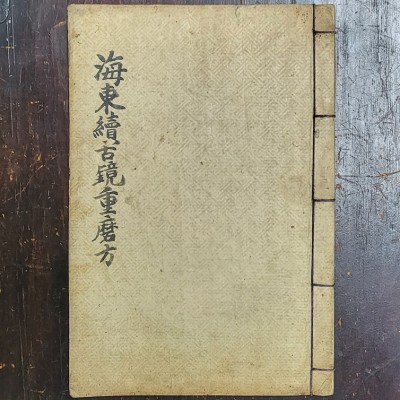 海東續古鏡重磨方